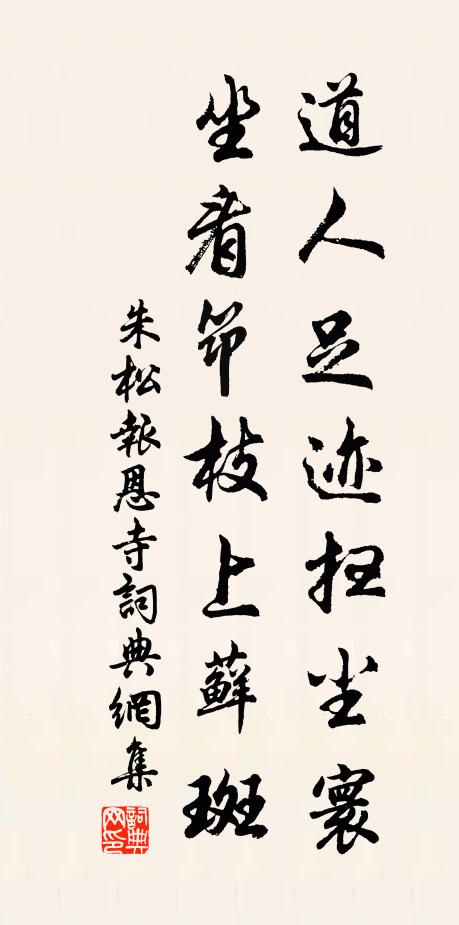 道人足迹扫尘寰
坐看筇枝上蘚斑
朱松報恩寺詞典網集
詞典网印